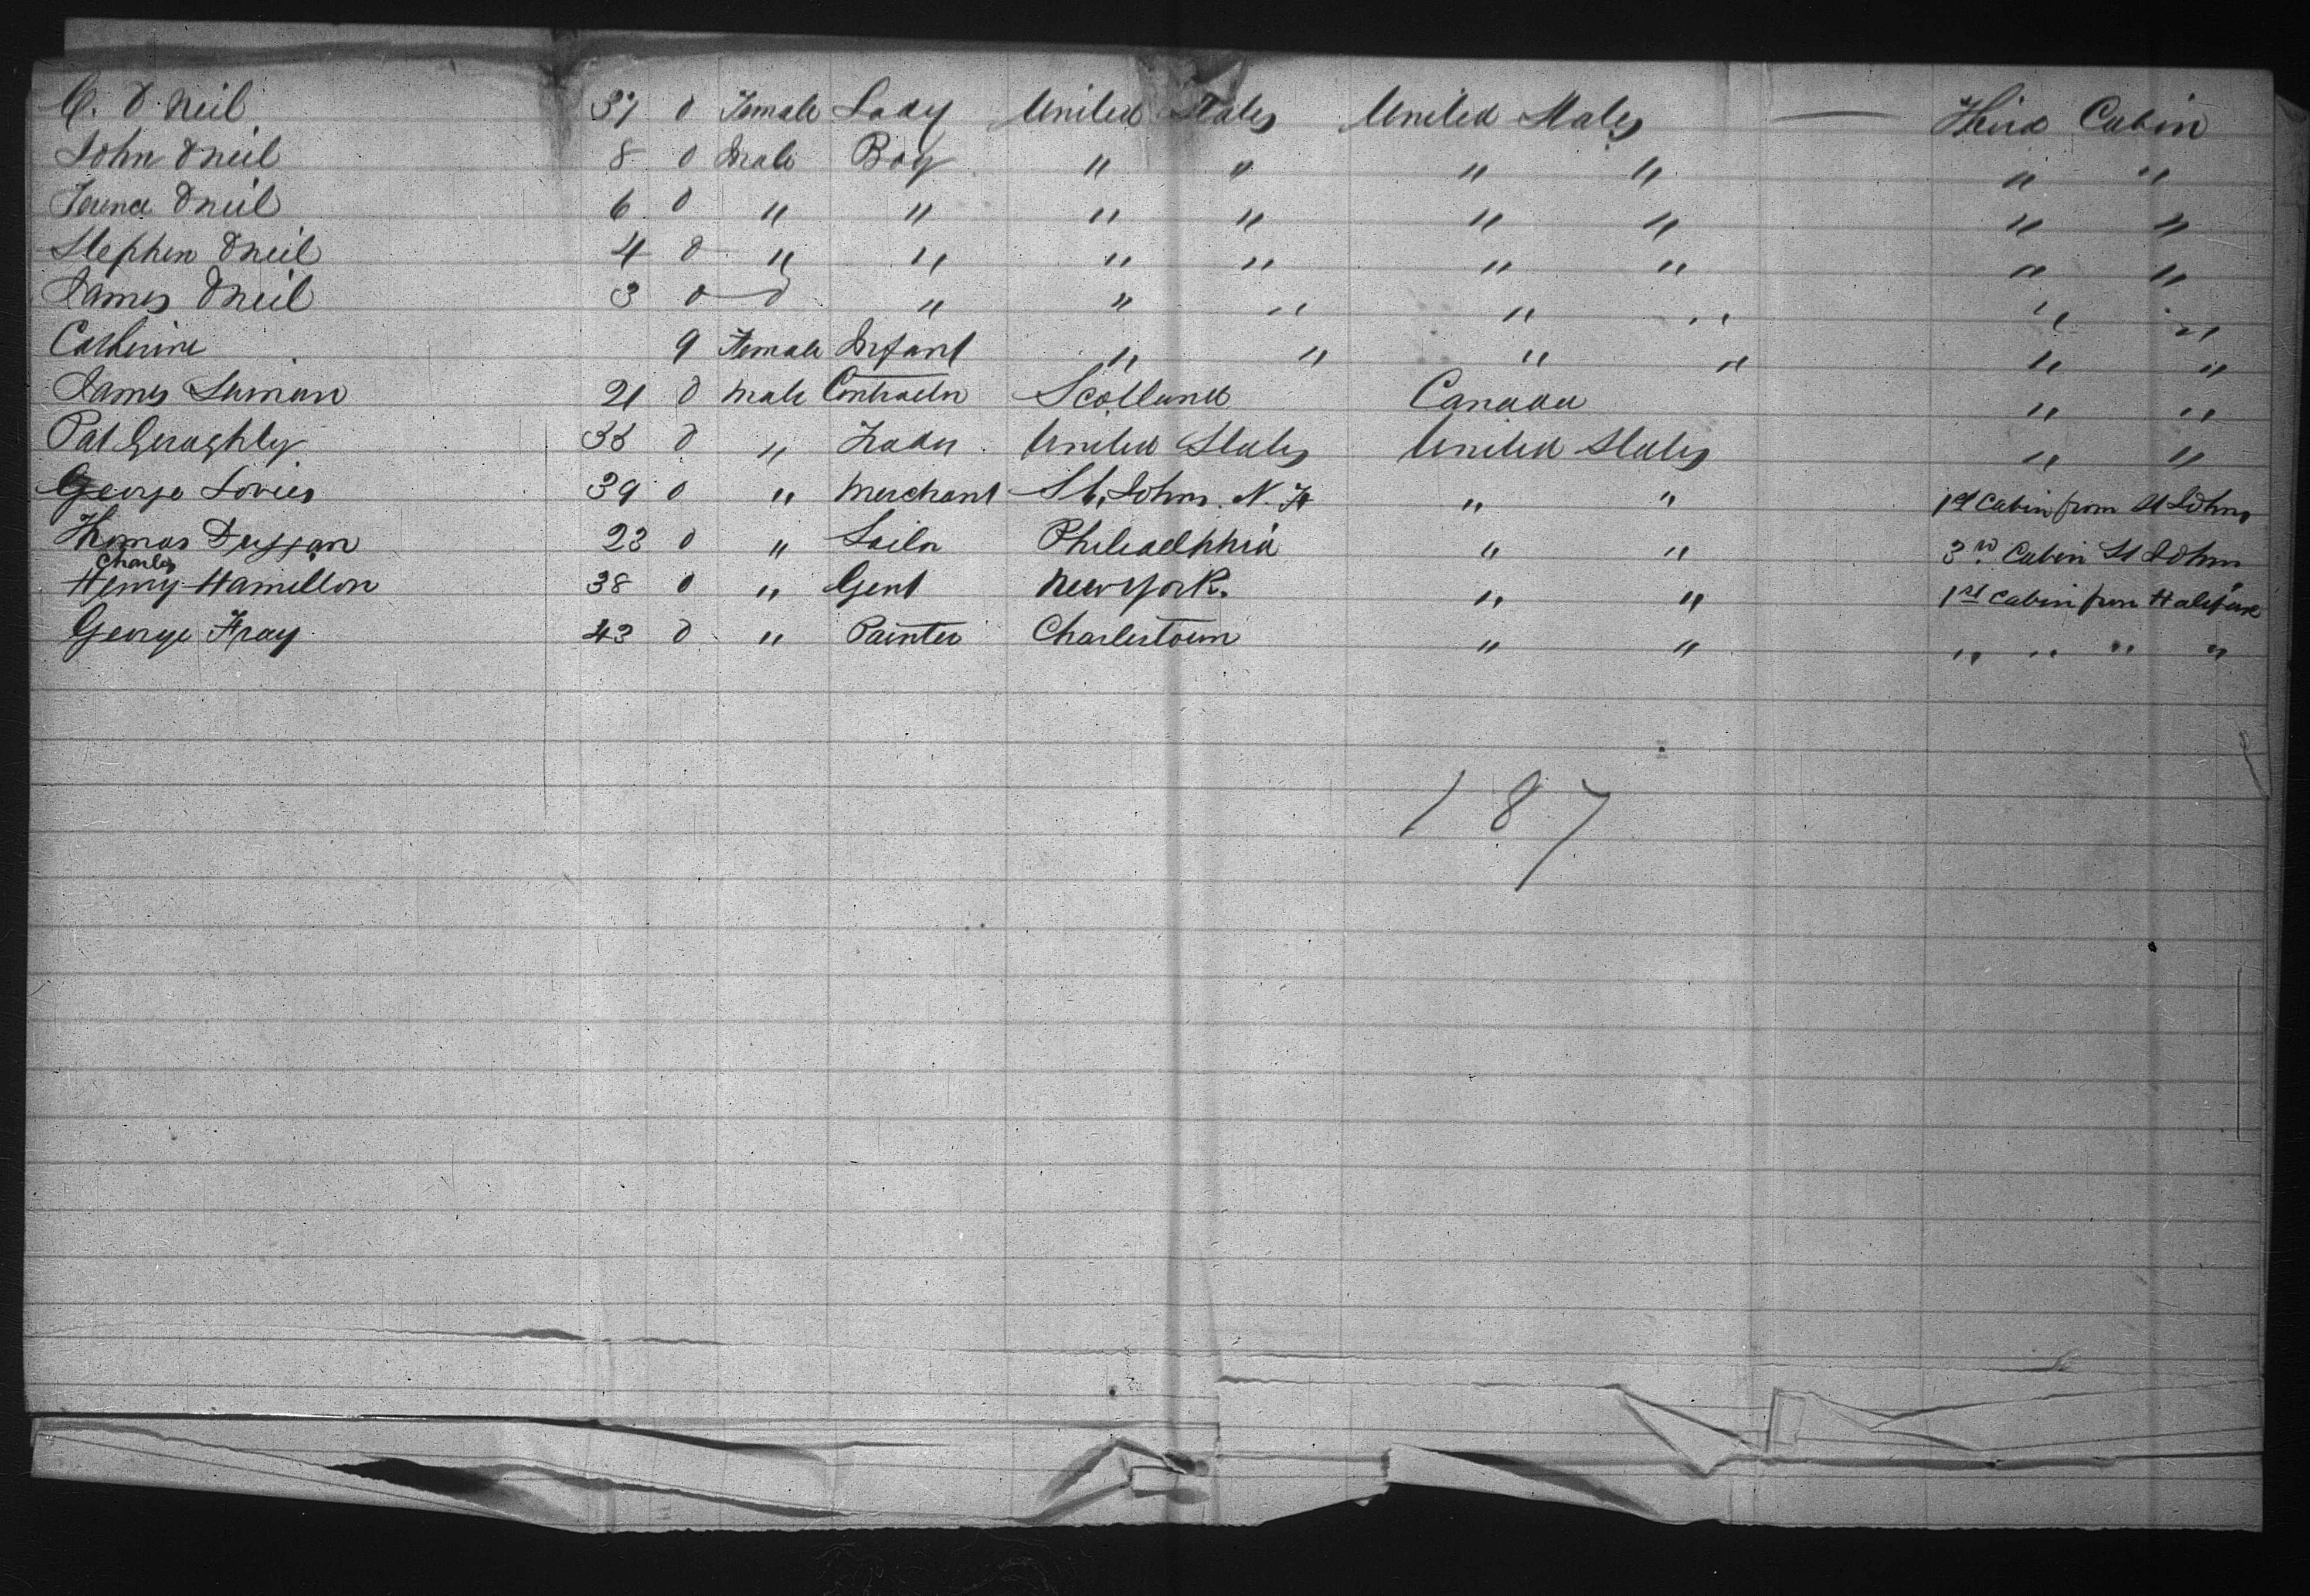 C. O Neil 37 0 Female Lady United States United States — Third Cabin
John O neil 8 0 Male Boy " " " " " "
O neil 6 0 " " " " " " " "
Stephen O neil 4 0 " " " " " " " "
James O neil 3 0 0 " " " " " " "
Catherine 9 Female Infant " " " " " "
James 21 0 male Contractor Scotland Canada " "
Pat Geraghty 35 0 " Trader United States United States " "
George 39 0 " Merchant St. Johns. N. F " " 1st Cabin from St Johns
Thomas Duggan 23 0 " Philadelphia " " 3rd Cabin St Johns
Charles
Henry Hamilton 38 0 " Gent New York. " " 1st Cabin from Halifax
George Fray 43 0 " Painter Charlestown " " " " " "
187